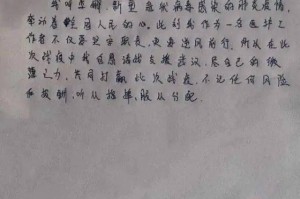 我叫 新型冠状病毒感染的肺炎疫情,
牵动着 全国人民的心, 此时我作为一名医务工
作者不仅要坚守岗位, 更要逆风前行, 所以在此
次战役中我自愿请战支援武汉, 尽自己的微
薄之力, 共同打赢此次战役, 不记任何风险
和报酬, 听从指挥, 服从分配.